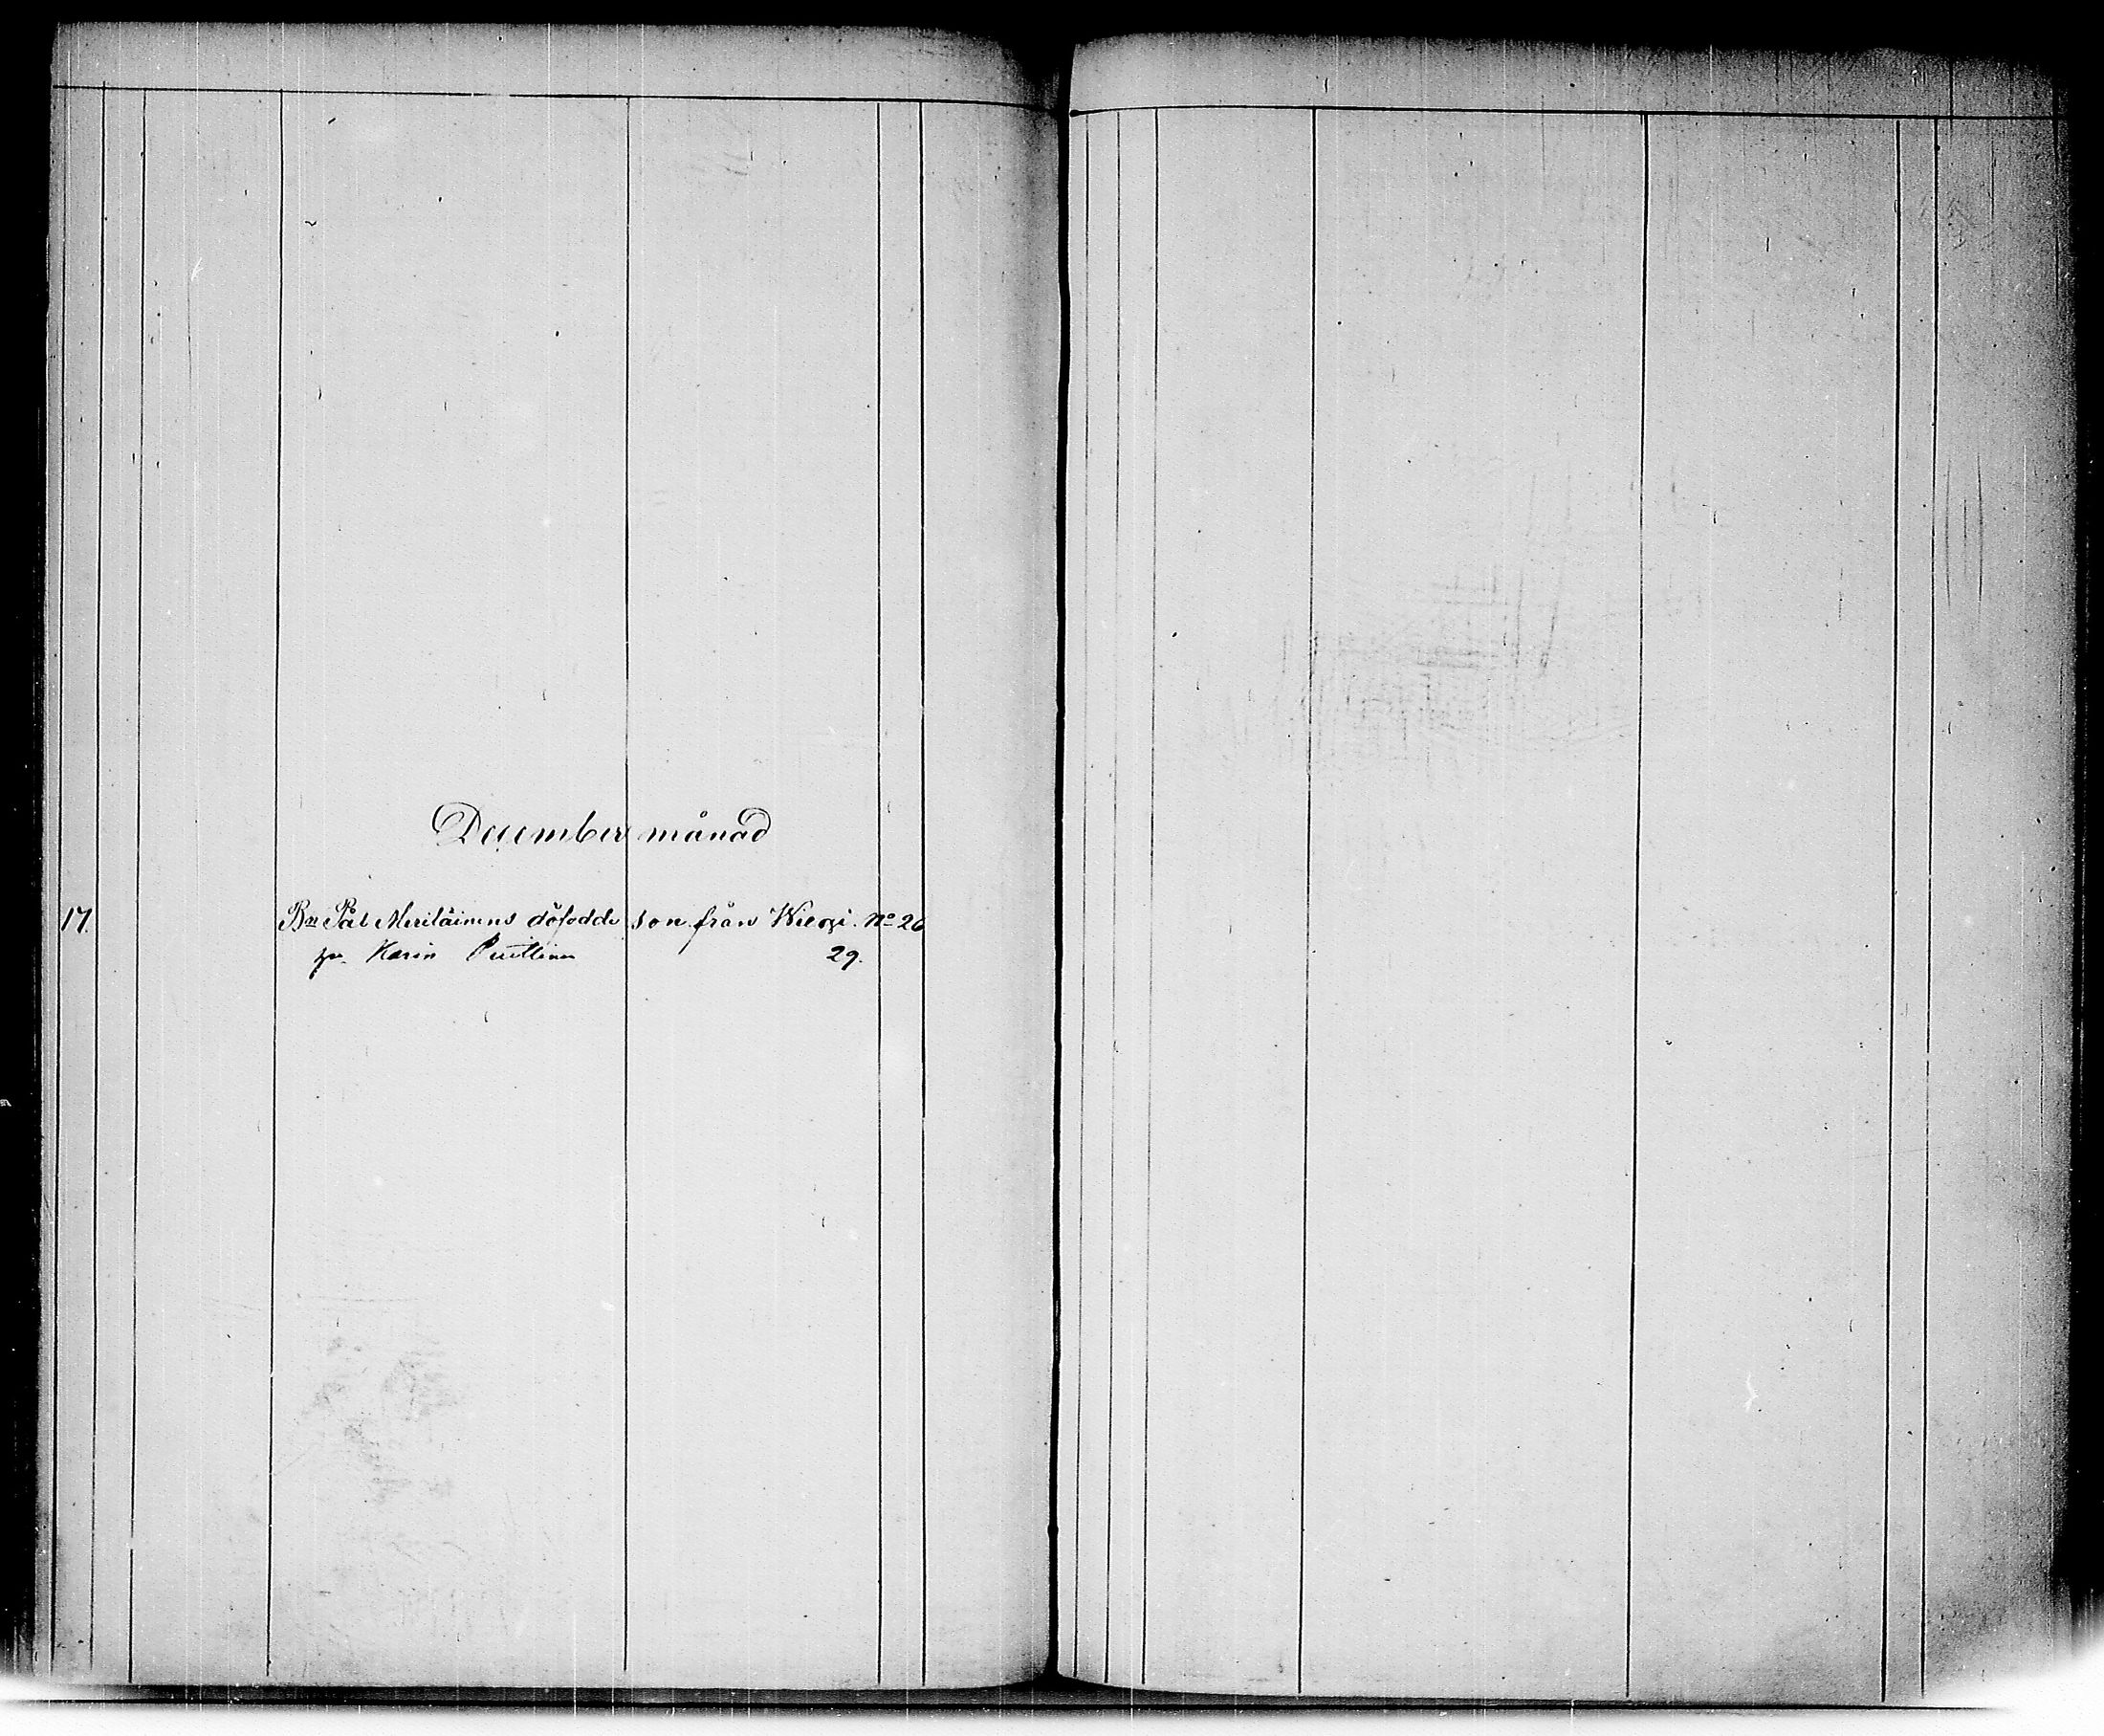 December månad
17. Bn Pål Meriläinens döfödde son från Wieksi. No 26
hu. Karin Puttinen 29.